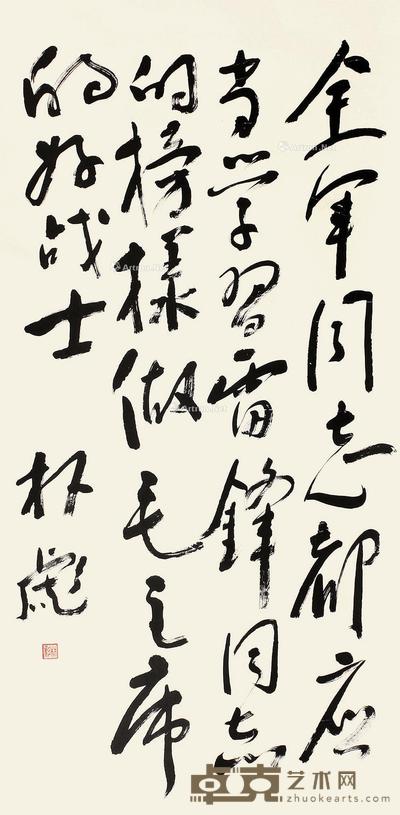 全军同志都应
当学習雷鋒同志
的榜樣做毛主席
的好战士
林彪
卓克艺术网
zhuokearts.com